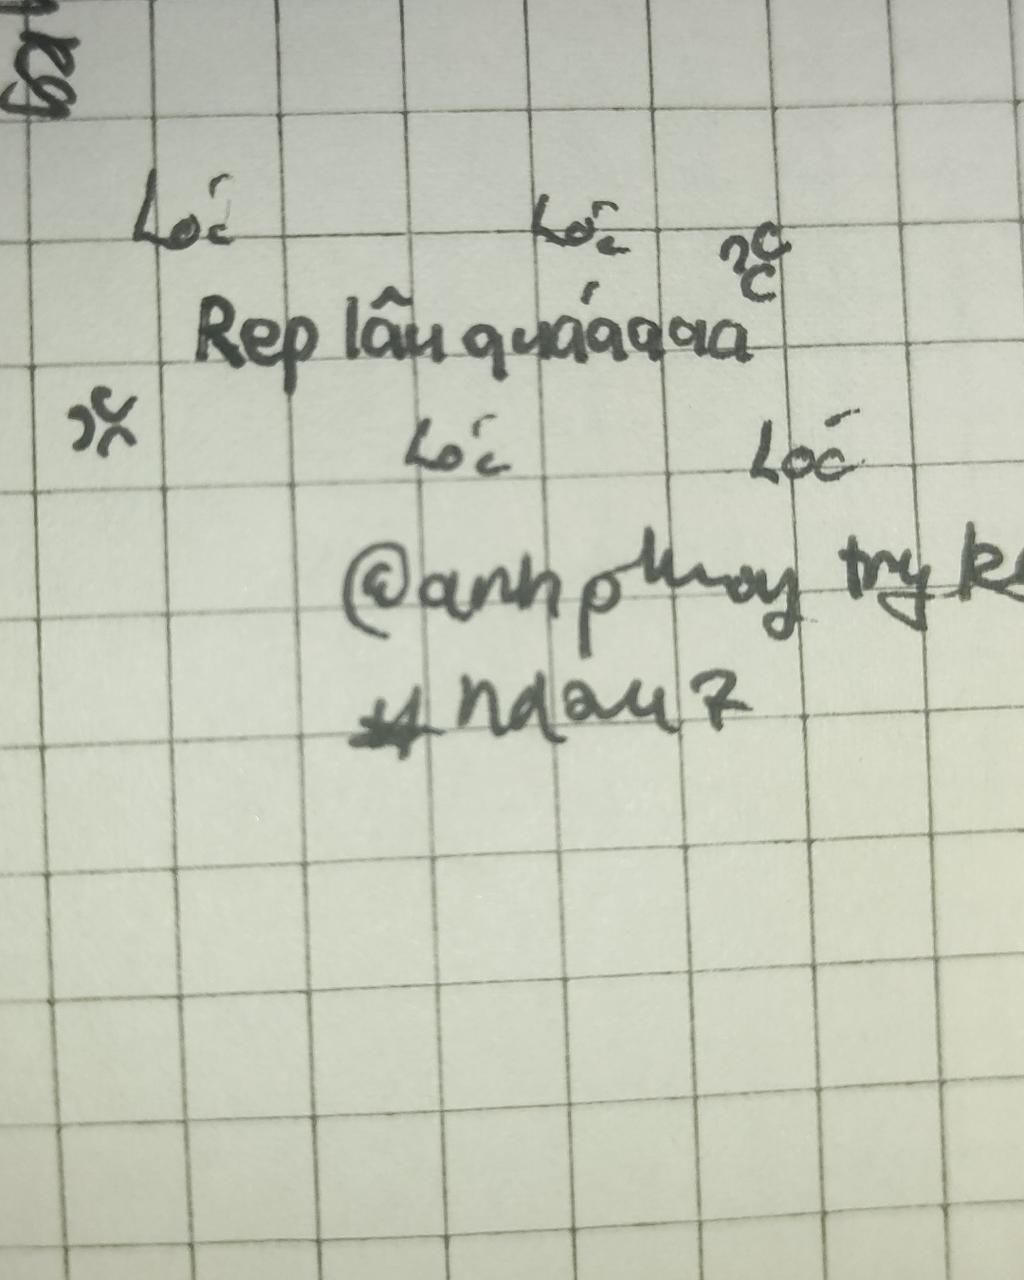 Lóc Lóc
Rep lâu quáaaaa
Lóc Lóc
@anhphway try
#ndau7